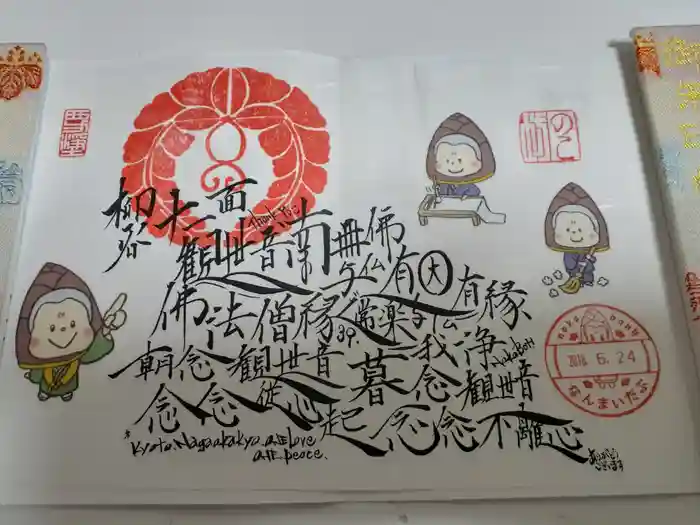 柳谷
十一面
観世音
Thank you
南無佛
与仏有大有縁
佛法僧縁
常楽我浄
NakaBoH
朝念観世音
暮念観世音
念念従心起
念念不離心
*Kyoto.Nagaokakyo.
love
peace.
ありがとう
ございます
naka bouH
2018 6.24
なんまいだぶ